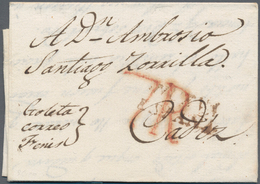 A Dn Ambrosio
Santiago Zorrilla.
Goleta
correo
Fenix
Cadiz